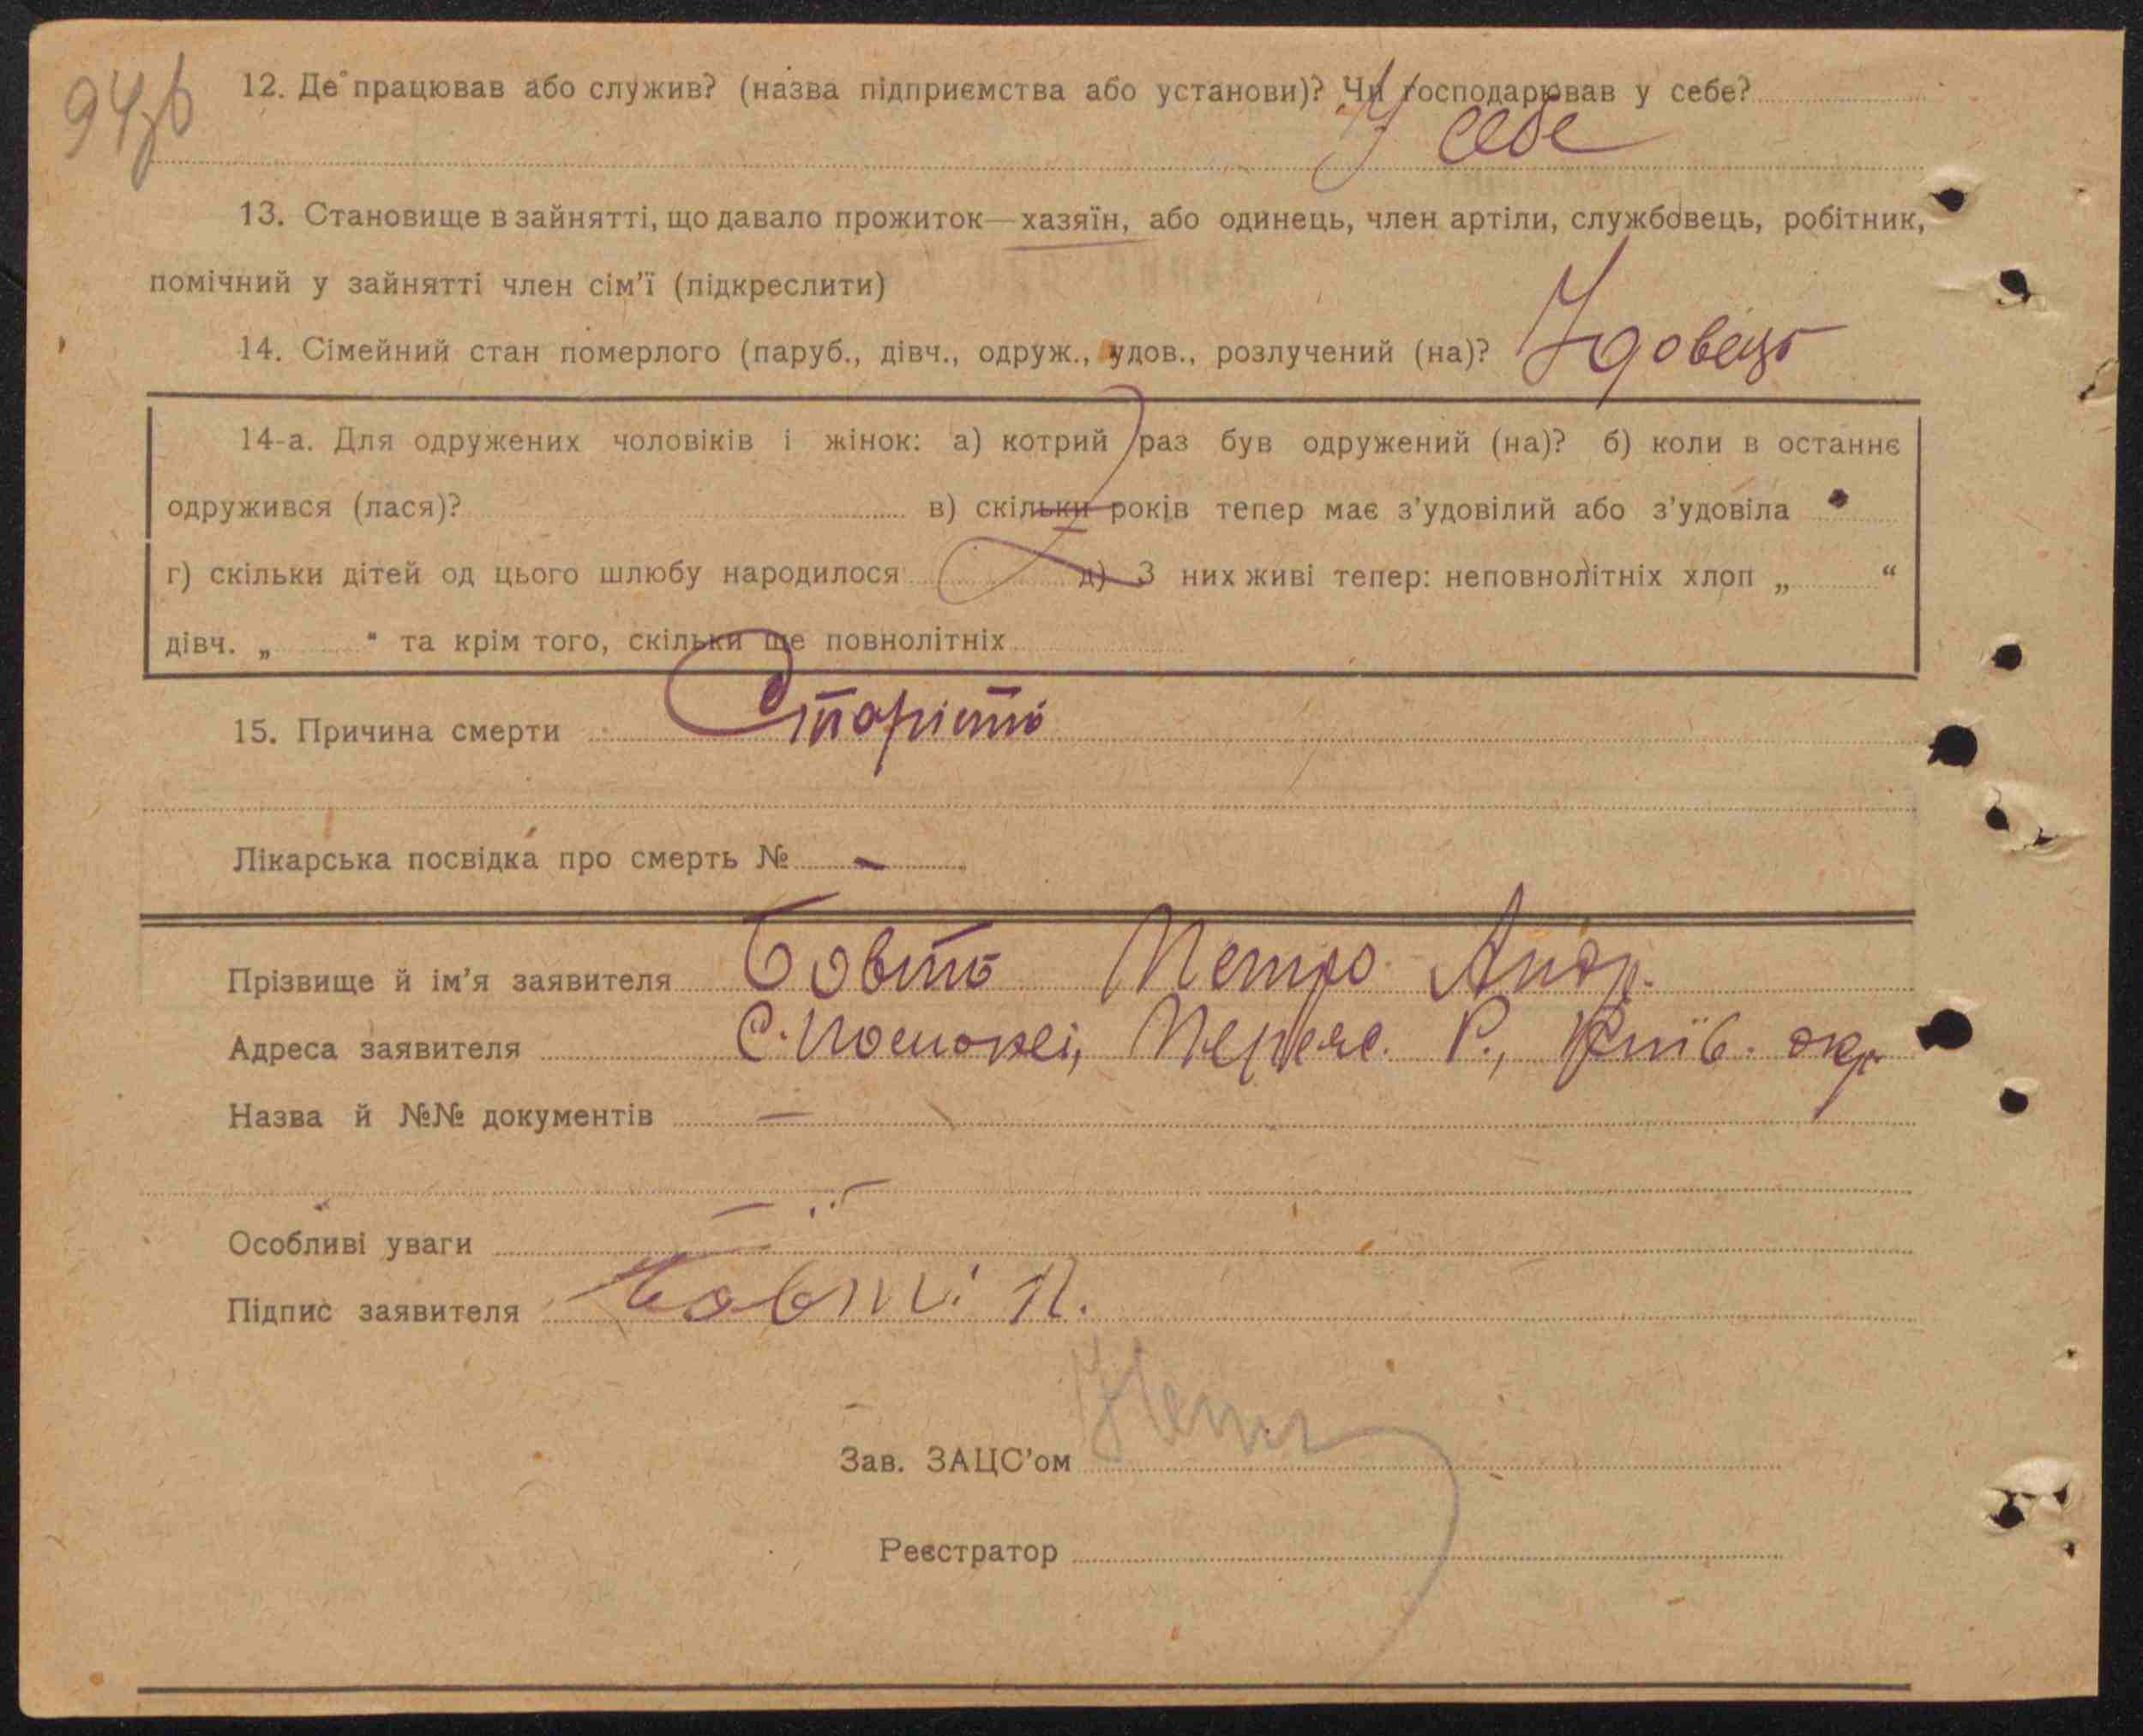 94зв
12. Де працював або служив? (назва підприємства або установи)? Чи господарював у себе?
У себе
13. Становище в зайнятті, що давало прожиток—хазяїн, або одинець, член артіли, службовець, робітник,
помічний у зайнятті член сім'ї (підкреслити)
14. Сімейний стан померлого (паруб., дівч., одруж., удов., розлучений (на)? Удовець
14-а. Для одружених чоловіків і жінок: а) котрий раз був одружений (на)? б) коли в останнє
одружився (лася)? в) скільки років тепер має з'удовілий або з'удовіла
г) скільки дітей од цього шлюбу народилося д) З них живі тепер: неповнолітніх хлоп „ “
дівч. „ “ та крім того, скільки ще повнолітніх
15. Причина смерти Старість
Лікарська посвідка про смерть № -
Прізвище й ім'я заявителя Бовть Петро Андр.
Адреса заявителя С. Переяс. Р., Київ. окр.
Назва й №№ документів —
Особливі уваги
Підпис заявителя П.
Зав. ЗАЦС'ом
Реєстратор